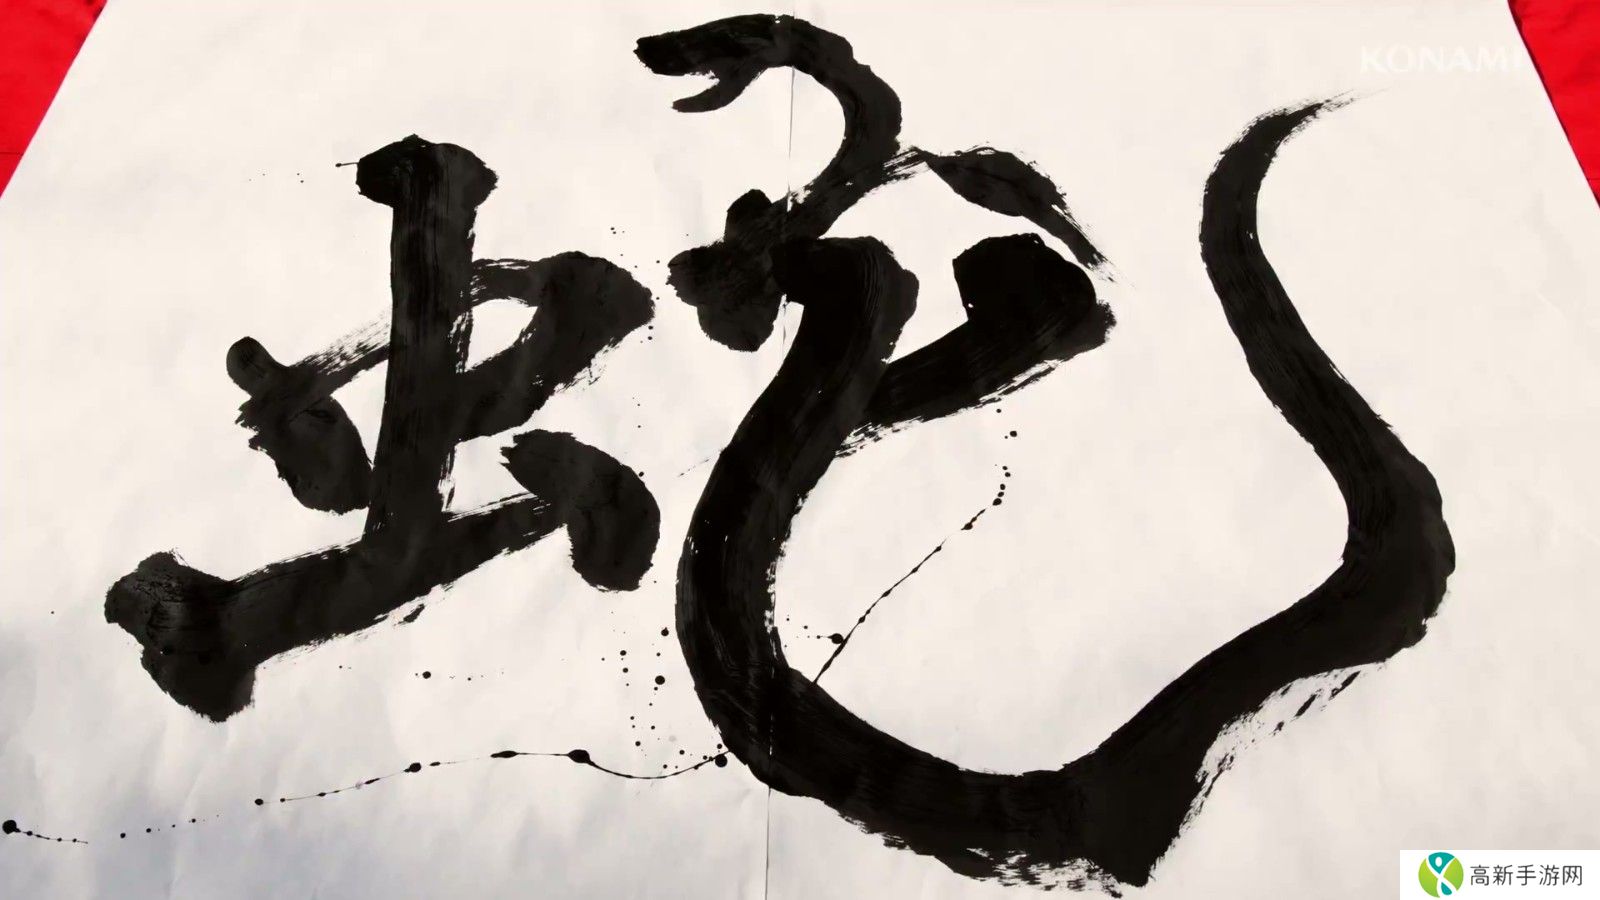 KONAMI
蛇
高新手游网